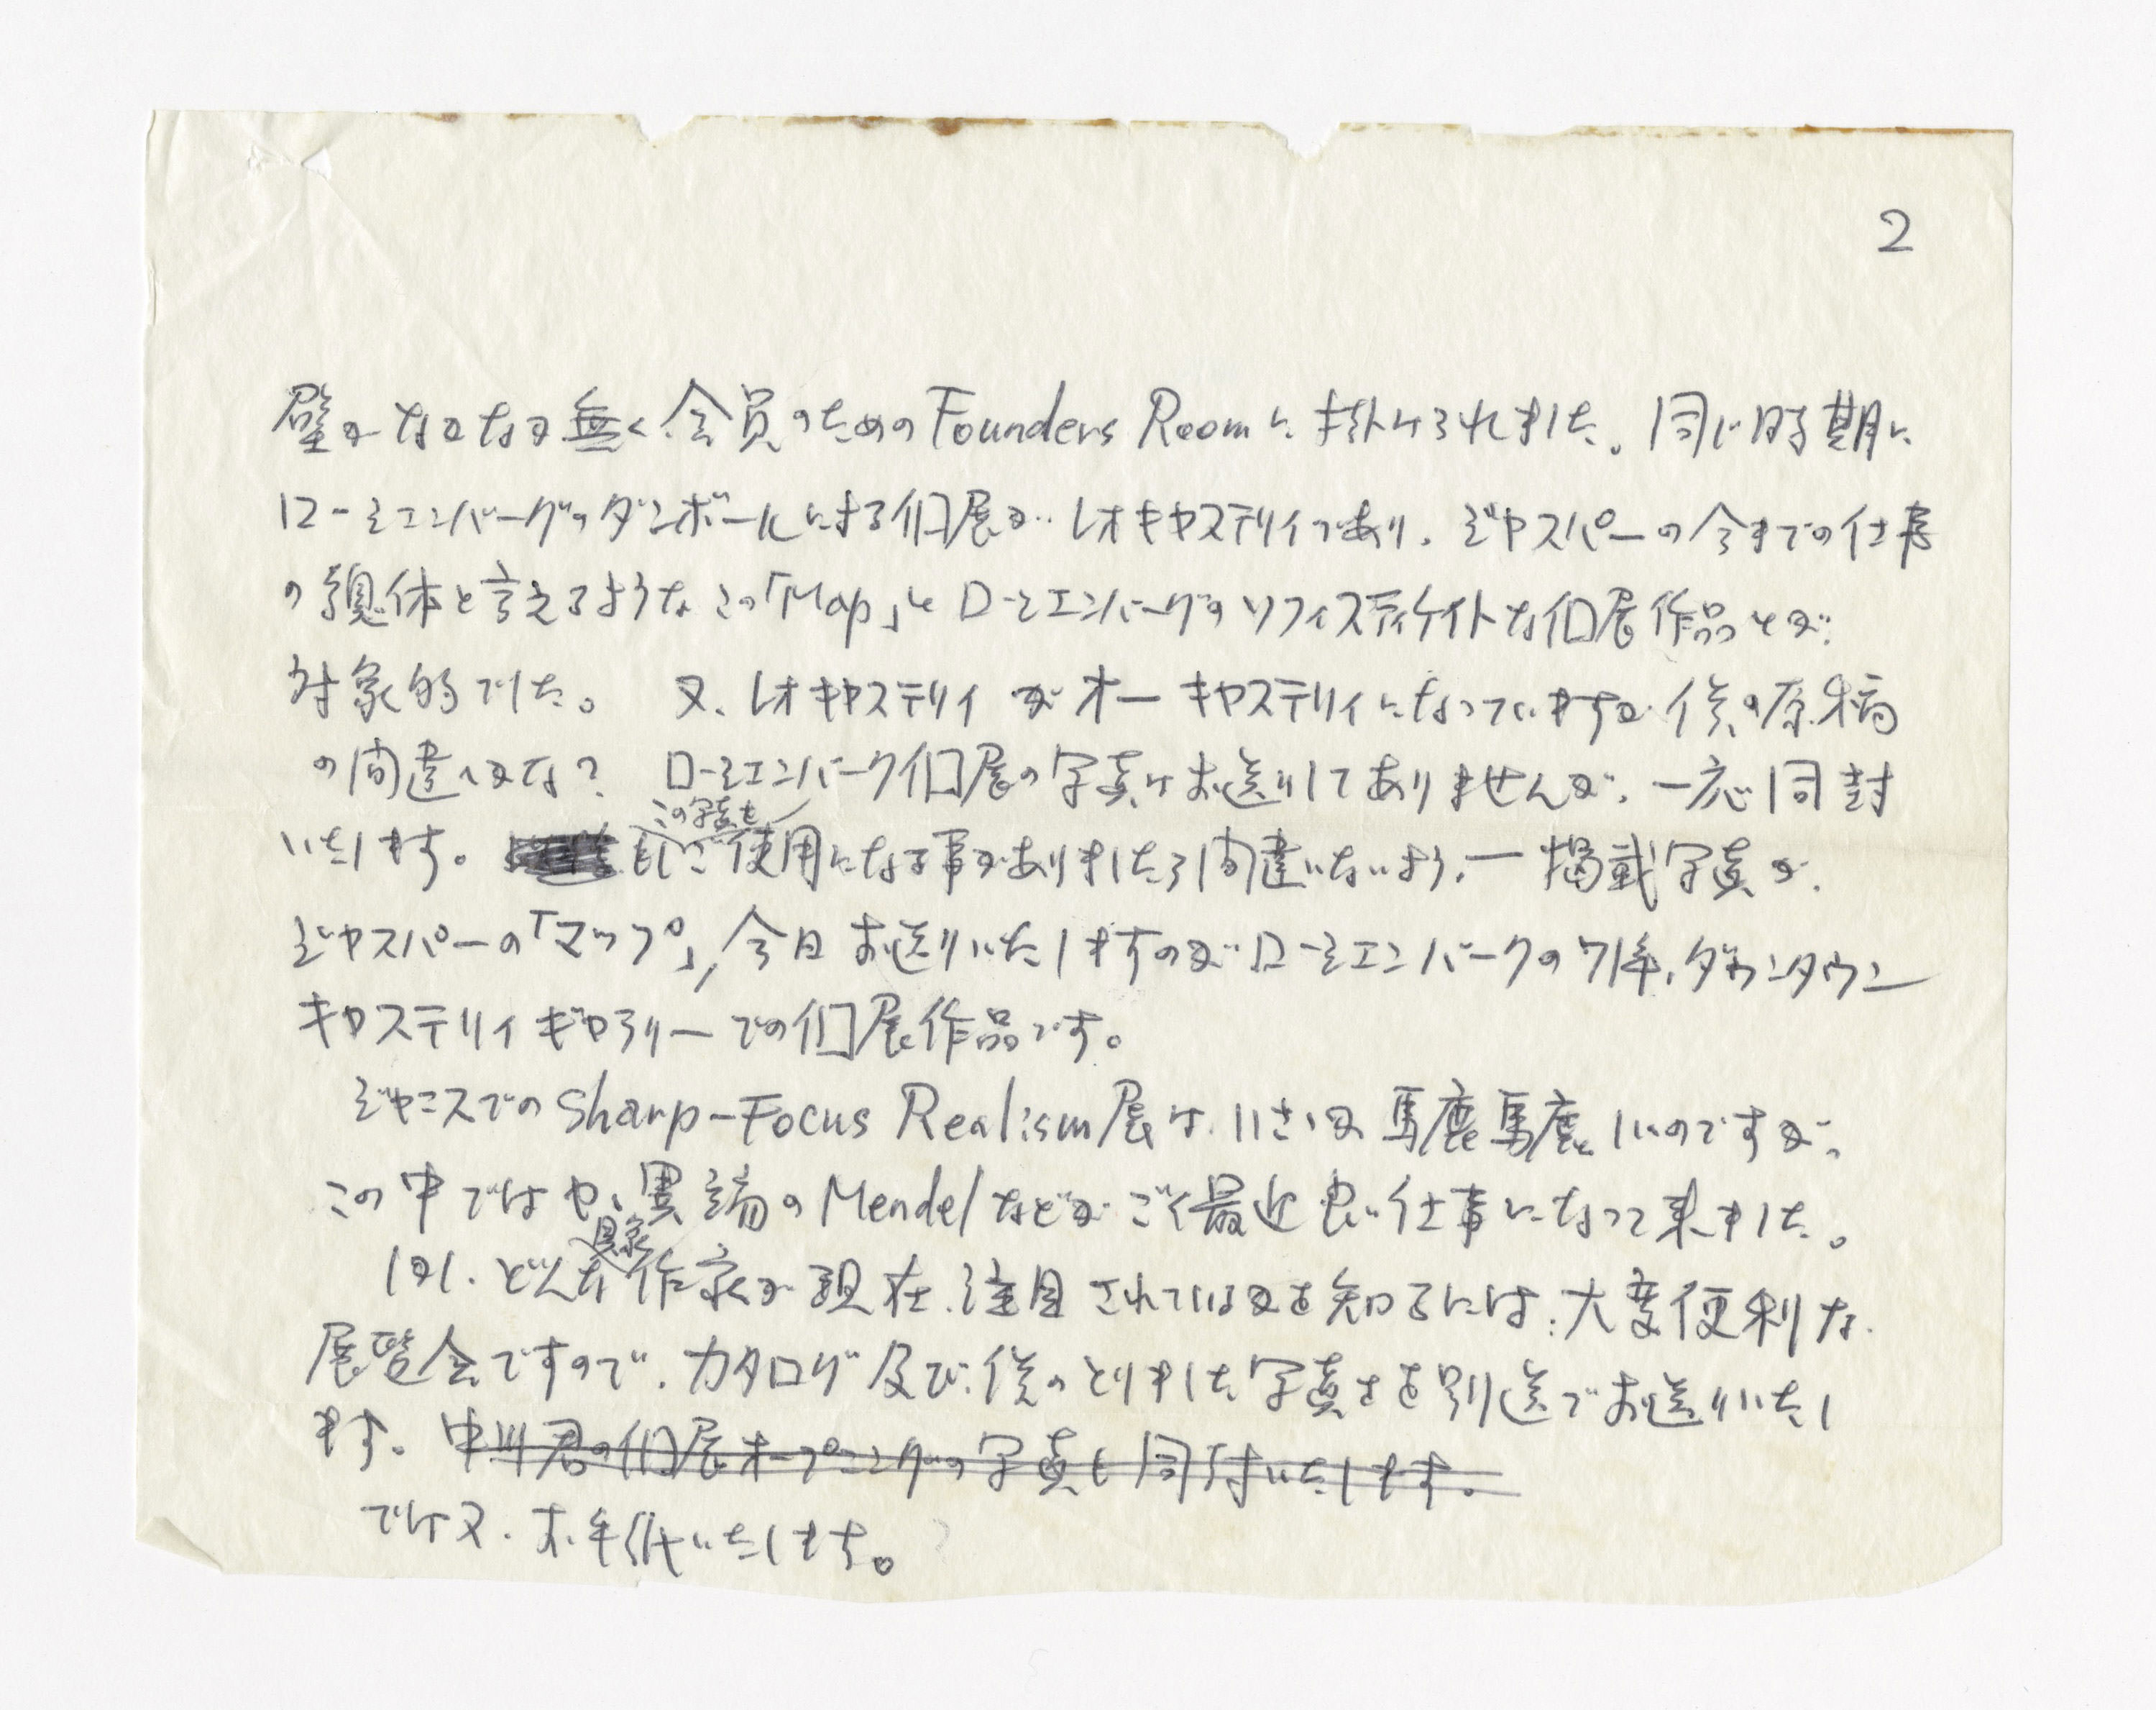 2
壁がなかなか無く会員のためのFounders Roomに掛けられました。同じ時期に
ローシェンバーグのダンボールによる個展が、レオキャステリィであり、ジャスパーの今までの仕事
の総体と言えるようなこの「Map」とローシェンバーグのソフィスティケイトな個展作品とが、
対象的でした。 又、レオキャステリィがオーキャステリィになっていますが、僕の原稿
の間違いかな? ローシェンバーク個展の写真はお送りしてありませんが、一応同封
いたします。
この写真を
もしご使用になる事がありましたら間違いないよう、一掲載写真が、
ジャスパーの「マップ」、今日お送りいたしますのがローシェンバークの71年、ダウンタウン
キャステリィギャラリーでの個展作品です。
ジャニスでのSharp-Focus Realism展は、いささか馬鹿馬鹿しいのですが、
この中ではやゝ異端のMendelなどがごく最近良い仕事になって来ました。
具象
しかし、どんな作家が現在、注目されているかを知るには、大変便利な
展覧会ですので、カタログ及び、僕のとりました写真とを別送でお送りいたし
ます。中川君の個展オープニングの写真も同封いたします。
では又、お手伝いたします。